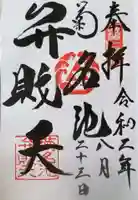 奉拝 令和二年
八月二十三日
菊名池
弁財天